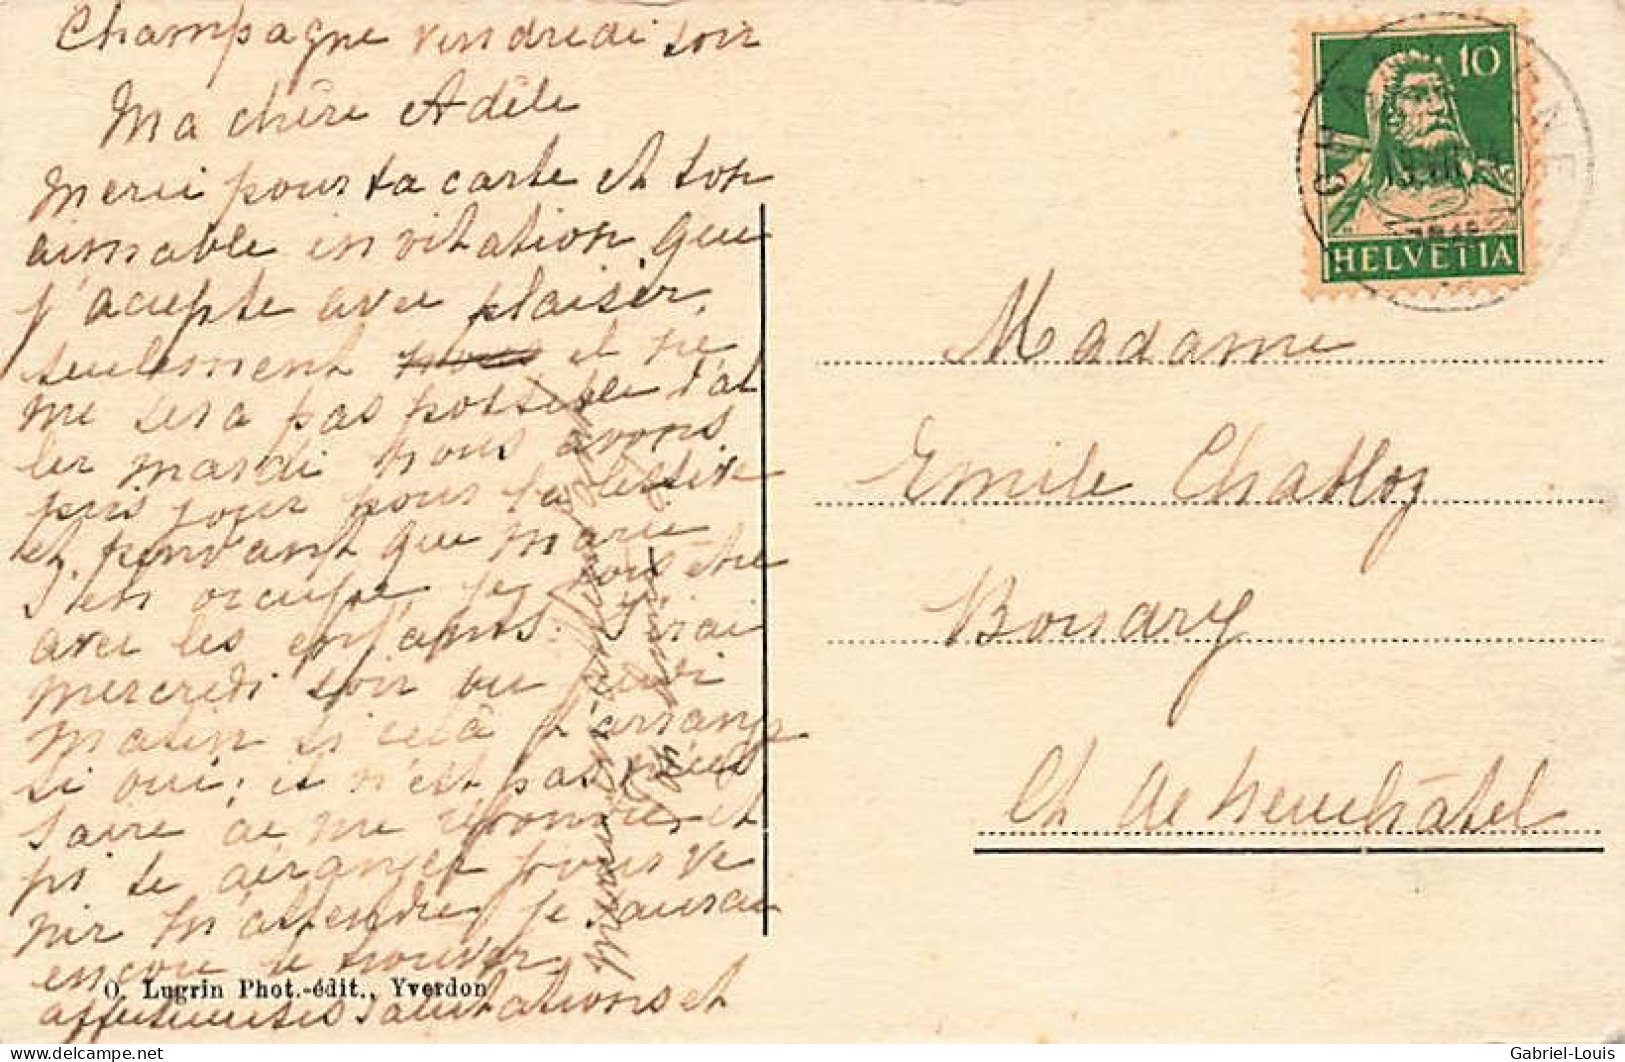 Champagne vendredi soir
Ma chère Adèle
Merci pour ta carte et ton
aimable invitation que
j'acepte avec plaisir,
seulement et ne
me sera pas possible d'al
ler mardi nous avons
pris jour pour la lessive
et pendant que Marie
s'en occupe je dois être
avec les enfants. J'irai
mercredi soir ou jeudi
matin si celà t'arrange
si oui; il n'est pas néces
saire de me répondre et
ni te déranger pour ve
nir m'attendre je saurai
encore te trouver
affectueuses salutations et
O. Lugrin Phot.-édit., Yverdon
10
HELVETIA
Madame
Emile Chabloz
Boudry
Ct de Neuchâtel
delcampe.net
Gabriel-Louis